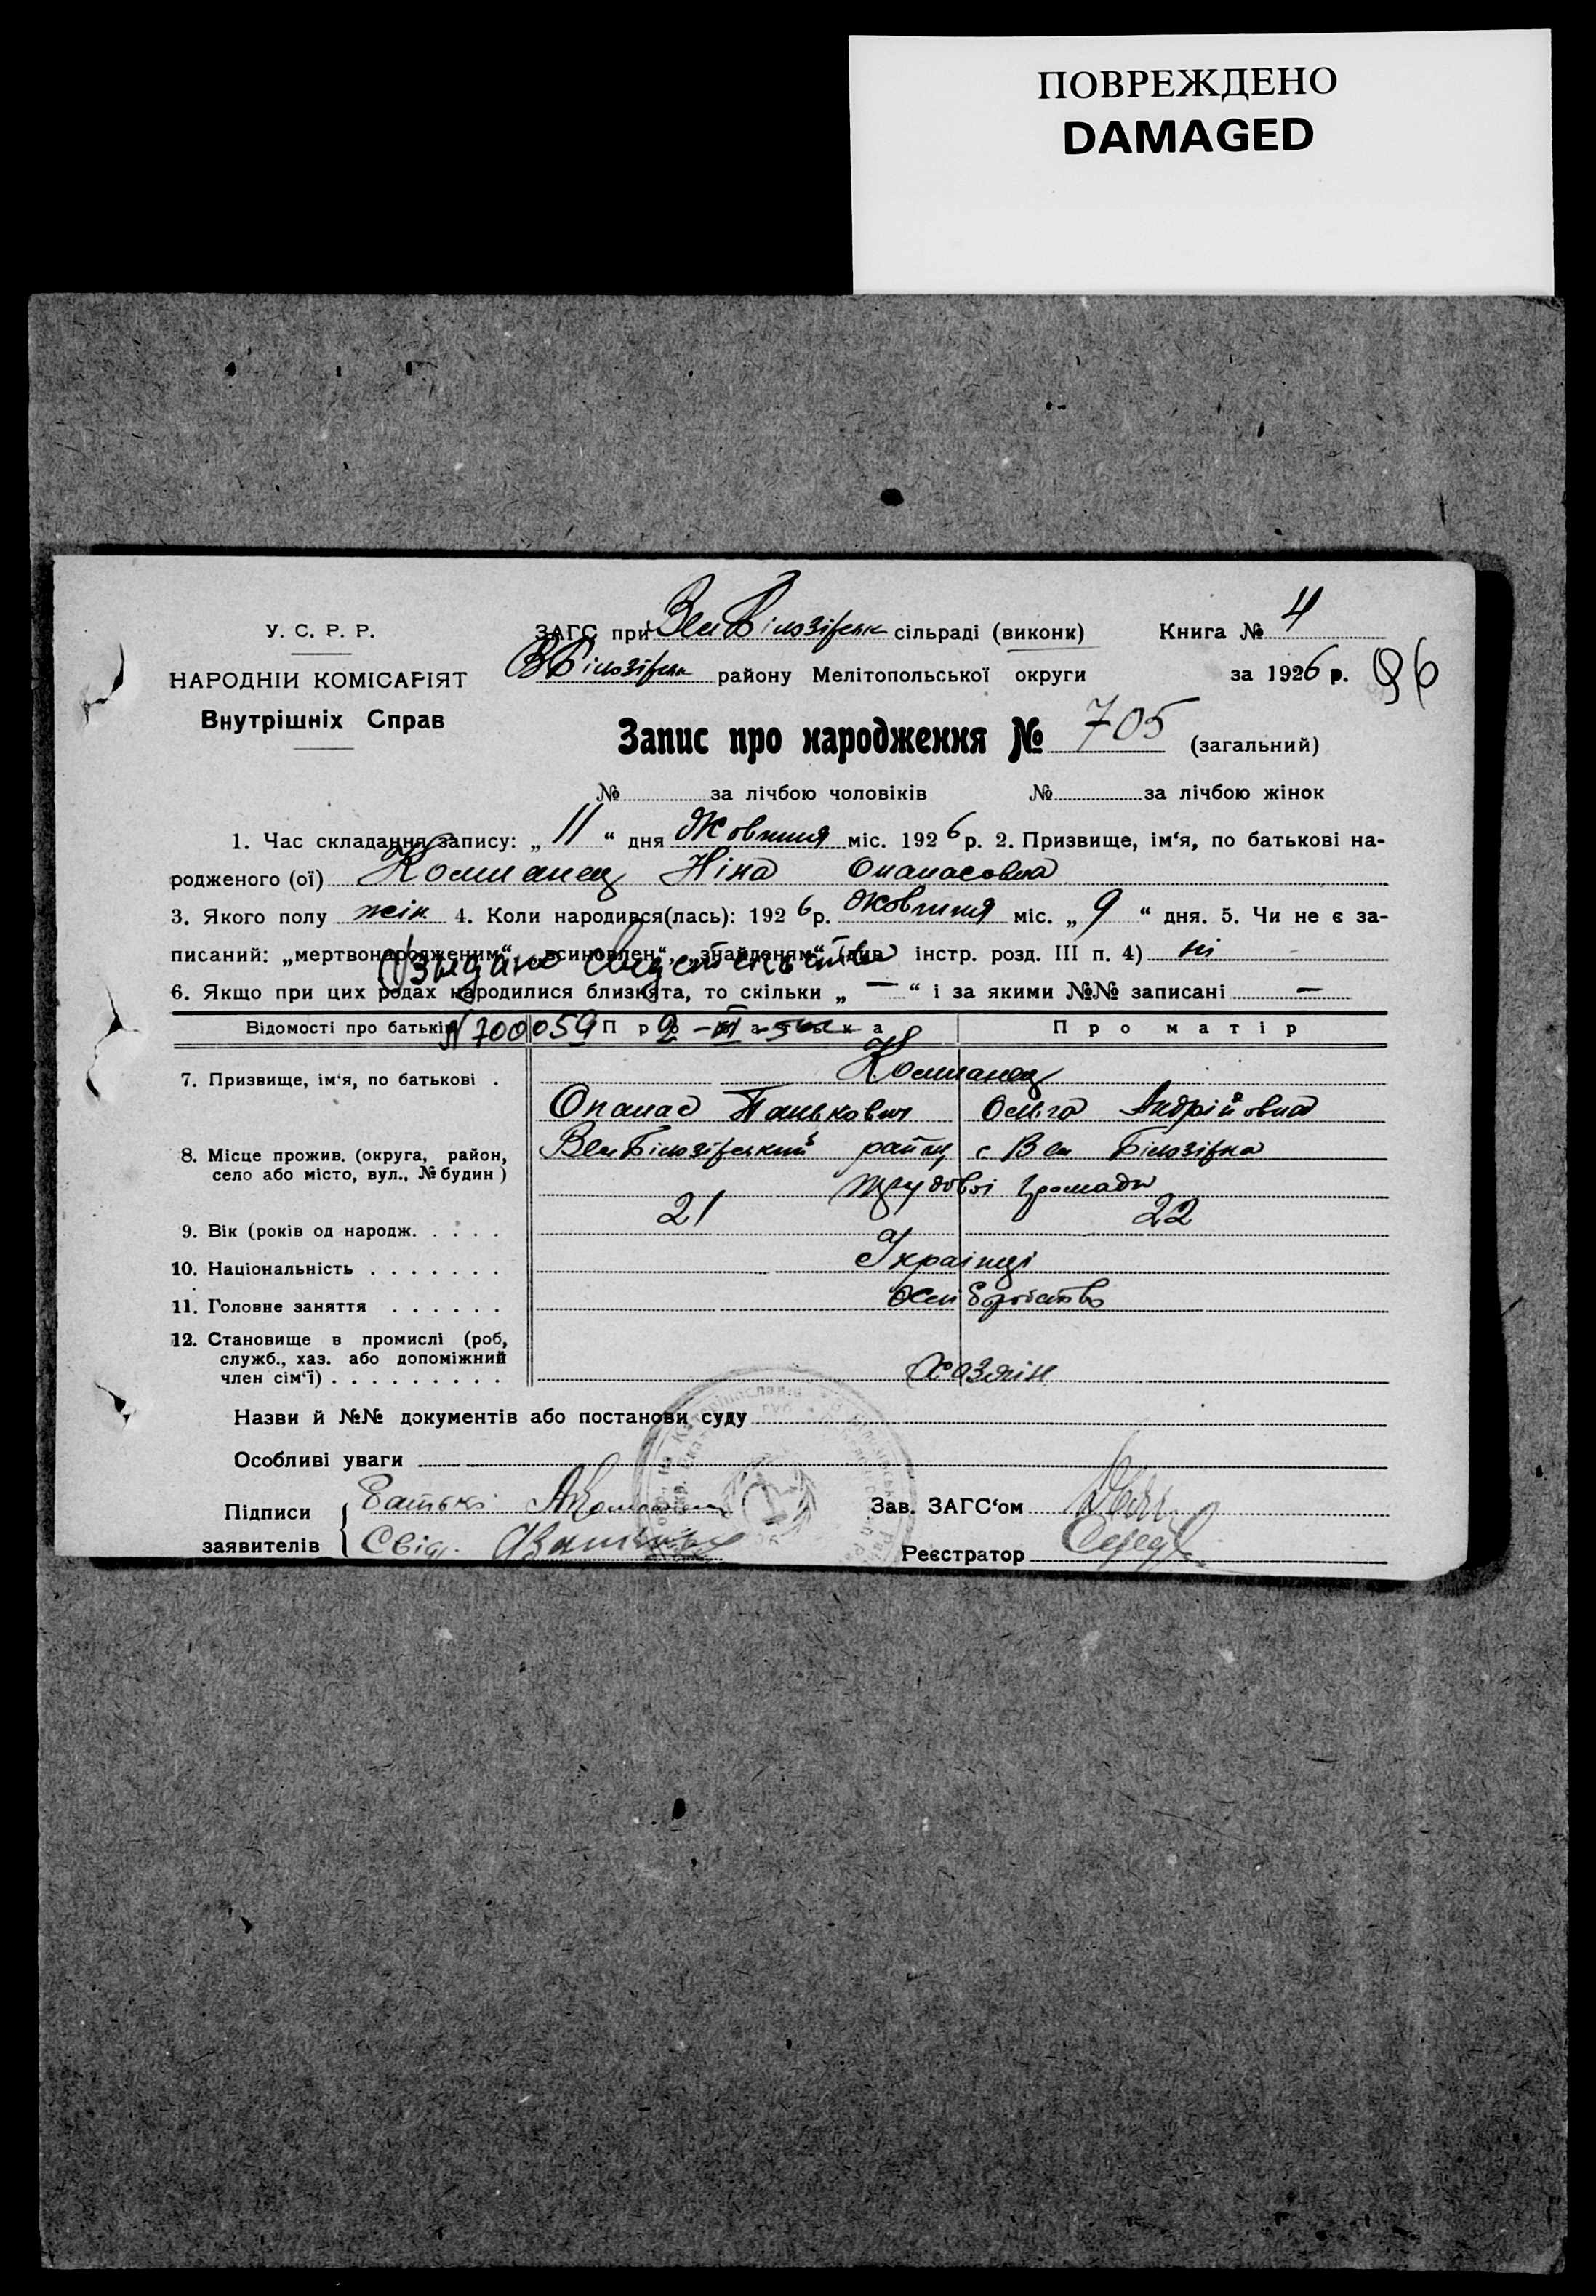 ПОВРЕЖДЕНО
DAMAGED
У. С. Р. Р.
НАРОДНІЙ КОМІСАРІЯТ
Внутрішніх Справ
ЗАГС при Вел Білозірськ сільраді (виконк)
Книга № 4
В Білозірськ району Мелітопольської округи
за 1926 р. 96
Запис про народження № 705 (загальний)
№ за лічбою чоловіків № за лічбою жінок
1. Час складання запису: „ 11 “ дня Жовтня міс. 1926 р. 2. Призвище, ім‘я, по батькові на-
родженого (ої) Компанец Ніна Опанасовна
3. Якого полу жін. 4. Коли народився(лась): 1926 р. Жовтня міс. „ 9 “ дня. 5. Чи не є за-
писаний: „мертвонародженим“, „всиновлен“, „знайденям“ (див інстр. розд. III п. 4) ні
6. Якщо при цих родах народилися близнята, то скільки „ — “ і за якими №№ записані —
N 700059 2-
Відомості про батьків Про батька Про матір
7. Призвище, ім‘я, по батькові . Компанец
Опанас Панькович Ольга Андрійовна
8. Місце прожив. (округа, район, село або місто, вул., № будин) ВелБілозірський район, с Вел Білозірка
Трудової громади
9. Вік (років од народж. . . . . 21 22
10. Національність . . . . . . . Українці
11. Головне заняття . . . . . . Хліборобство
12. Становище в промислі (роб, служб., хаз. або допоміжний член сім‘ї) . . . . . . . . . Хазяін
Назви й №№ документів або постанови суду
Особливі уваги
Підписи заявителів
Батько
Свід.
Зав. ЗАГС‘ом
Реєстратор